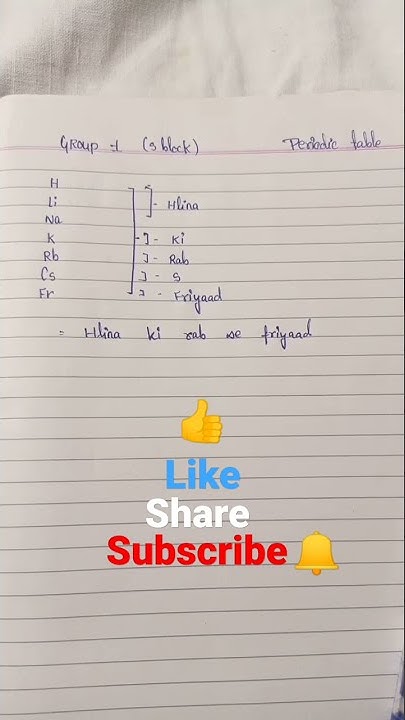 GROUP -1 (s block) Periodic table
H
Li ]- Hlina
Na
K ]- Ki
Rb ]- Rab
Cs ]- S
Fr ]- Friyaad
= Hlina ki rab se friyaad
👍
Like
Share
Subscribe 🔔